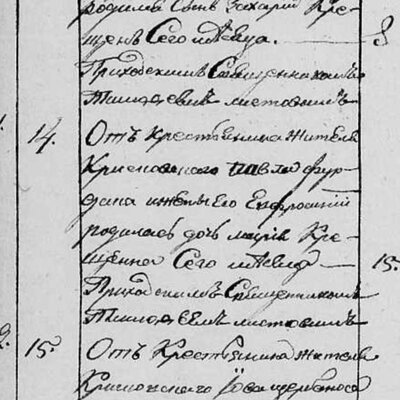 родился Сынъ Захарій Кре-
щенъ Сего мѣсяца. 8
Приходскимъ Священникомъ
Тимофеемъ Листовымъ
14. Отъ Крестьянина жителя
Крисновского Павла Фур-
дана и жены Его Ефросиніи
родилась дочь Марія Кре-
щенна Сего мѣсяца 15.
Приходскимъ Священникомъ
Тимофеемъ Листовымъ
15. Отъ Крестьянина жителя
Крисновского